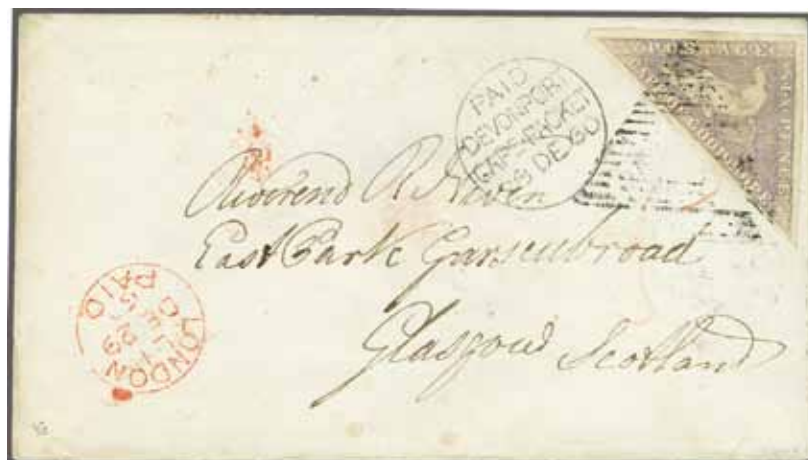 POSTAGE
SIX PENCE
PAID
DEVONPORT
CAPE-PACKET
28 DE 60
Reverend R Niven
East Park
Glasgow Scotland
LONDON
DE 29
PAID